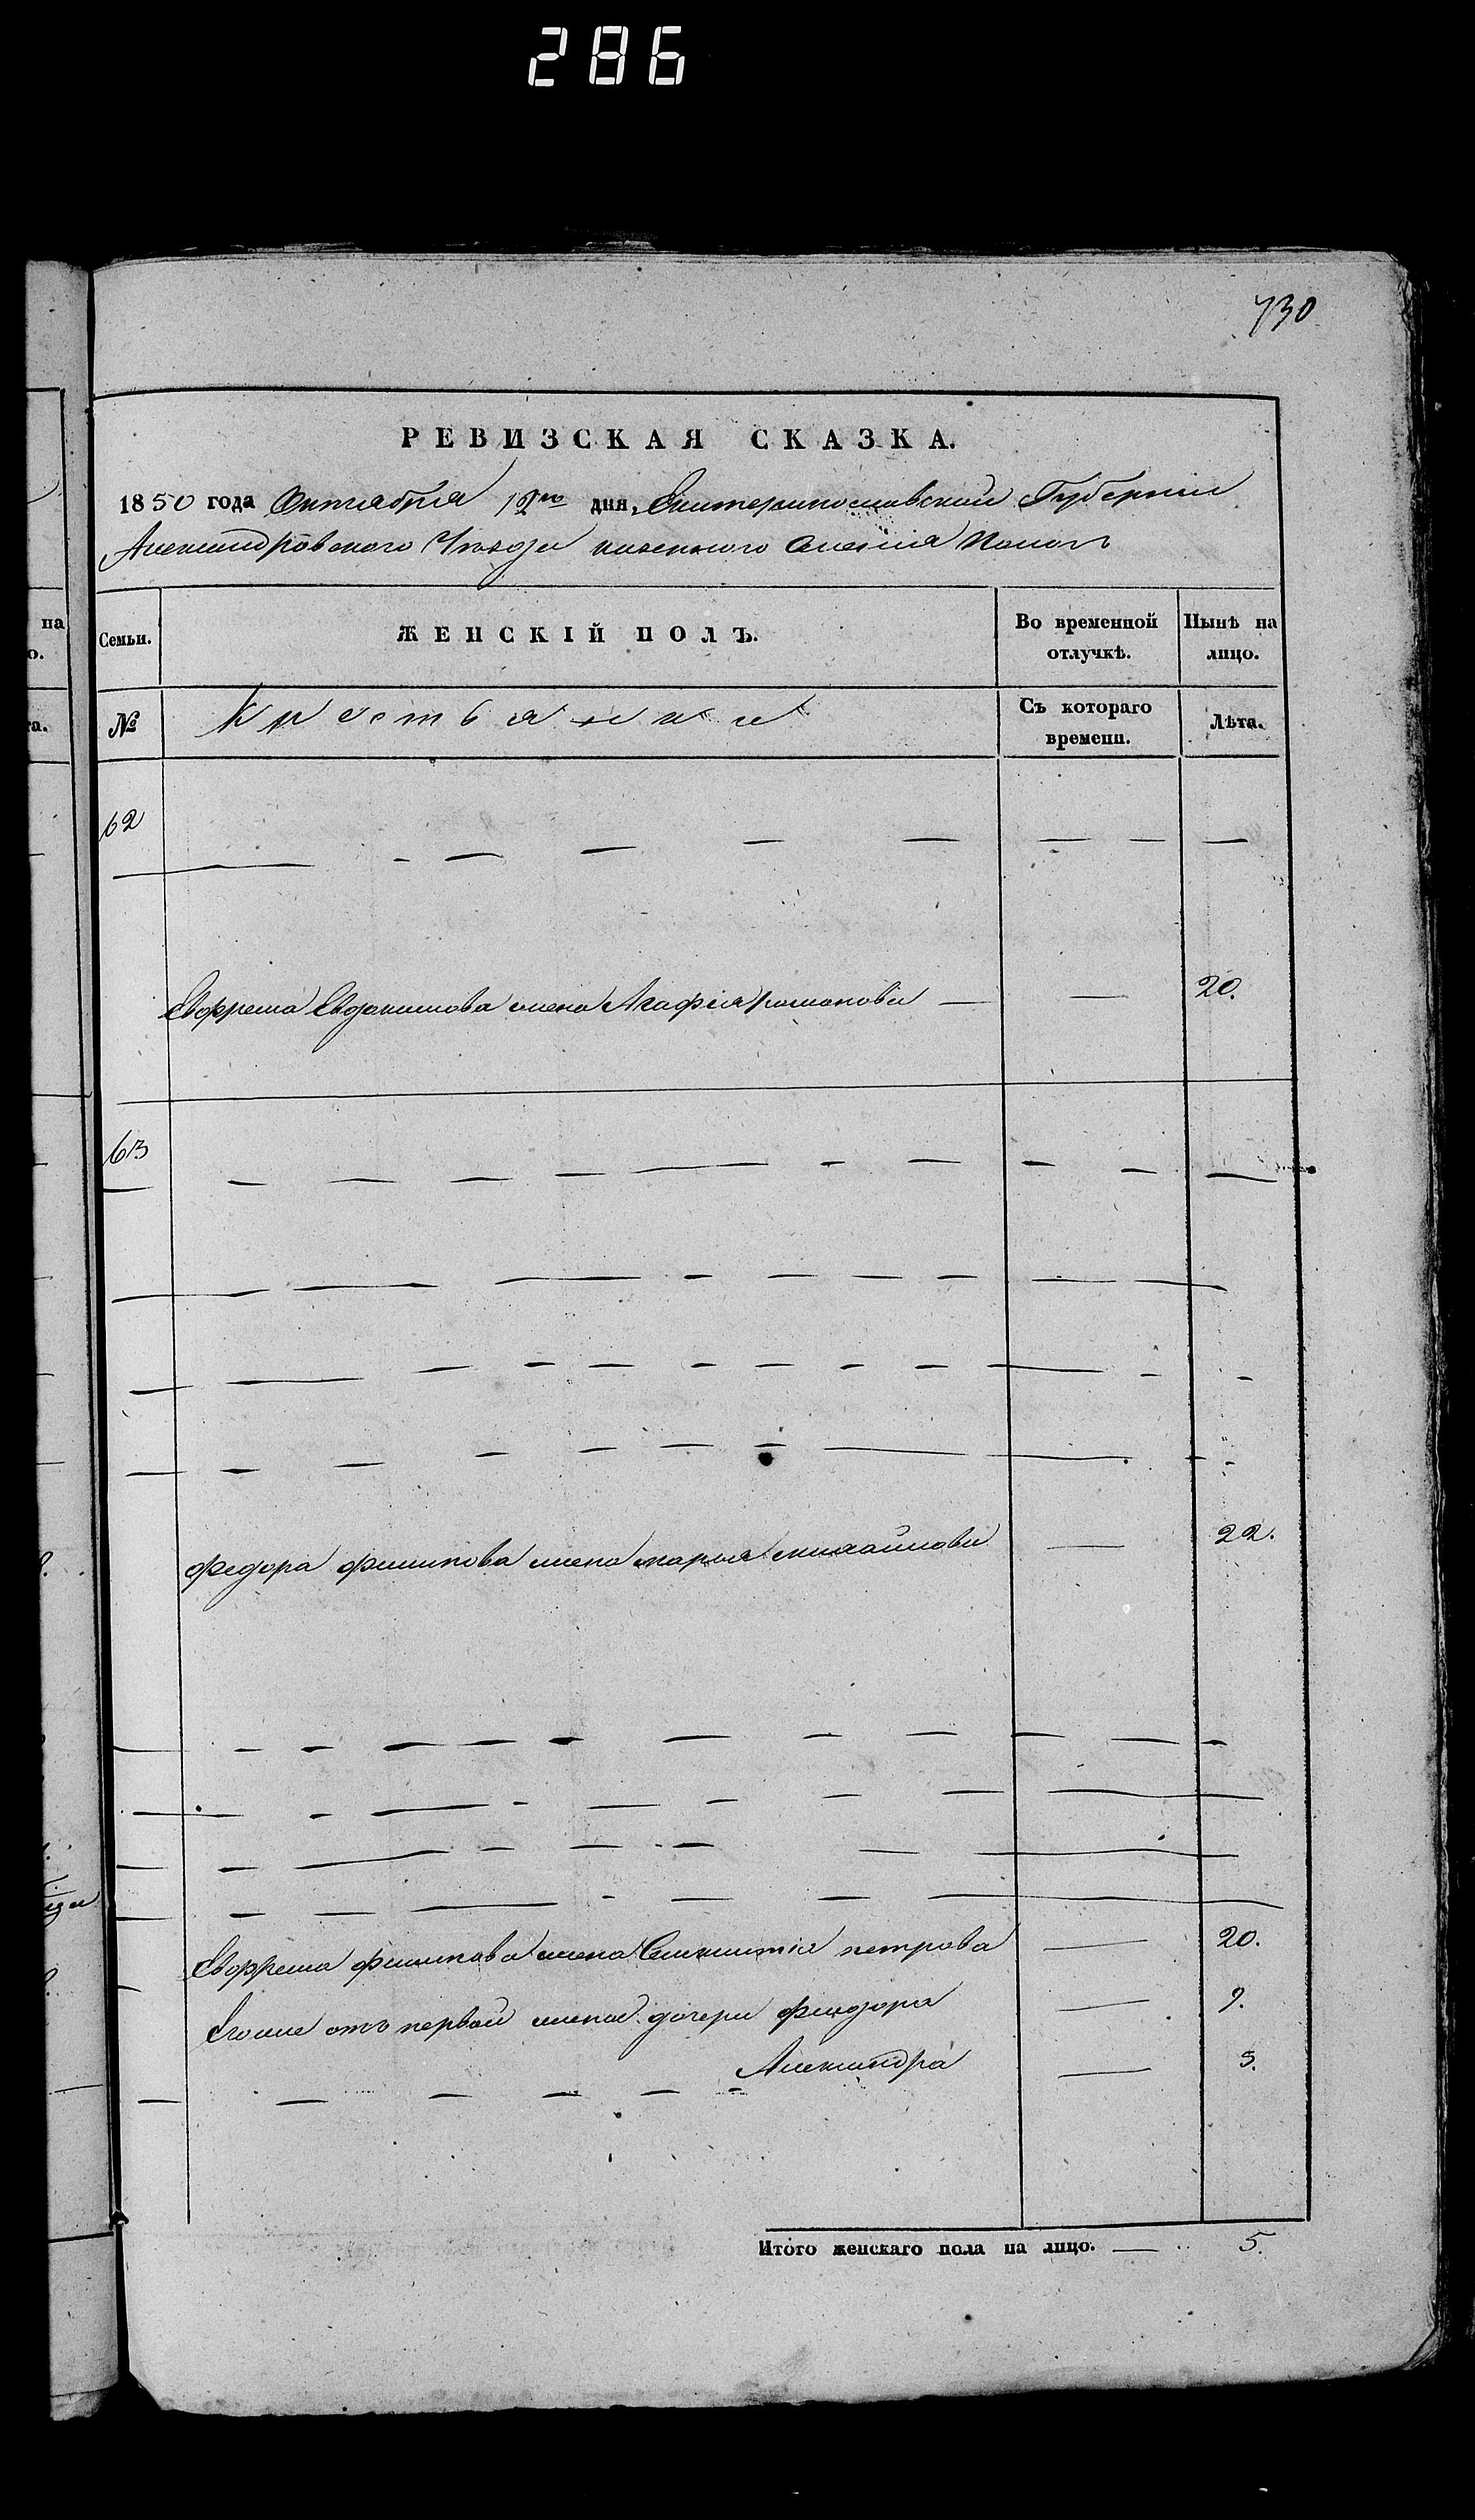 286
730
РЕВИЗСКАЯ СКАЗКА.
1850 года Октября 12го дня, Екатеринославской Губернии
Александровского Уѣзда казенного селения
Семьи. ЖЕНСКІЙ ПОЛЪ. Во временной отлучкѣ. Нынѣ на лицо.
№ Крестьянки Съ котораго времени. Лѣта.
62
Ефрема Евдокимова жена Агафія романова — — 20.
63
Федора филипова жена марья михайлова — 22.
Ефрема филипова жена петрова — 20.
Егоже отъ первой жены дочери — 9.
Александра — 3.
Итого женскаго пола на лицо. — 5.
на
о.
та.